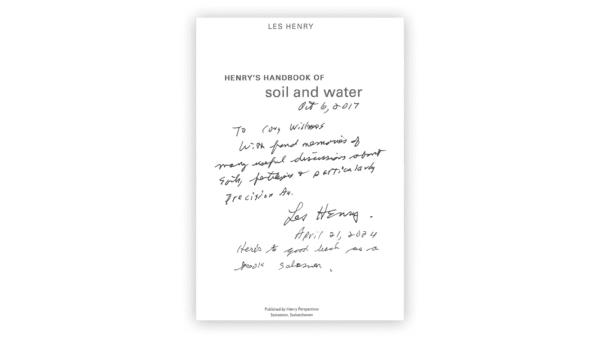 LES HENRY
HENRY'S HANDBOOK OF
soil and water
Oct 6, 2017
To Cory Willness
With fond memories of
many useful discussions about
Soils, fertilizer & particularly
Precision Ag.
Les Henry.
April 21, 2024
Here's to good luck as a
book salesman.
Published by Henry Perspectives
Saskatoon, Saskatchewan